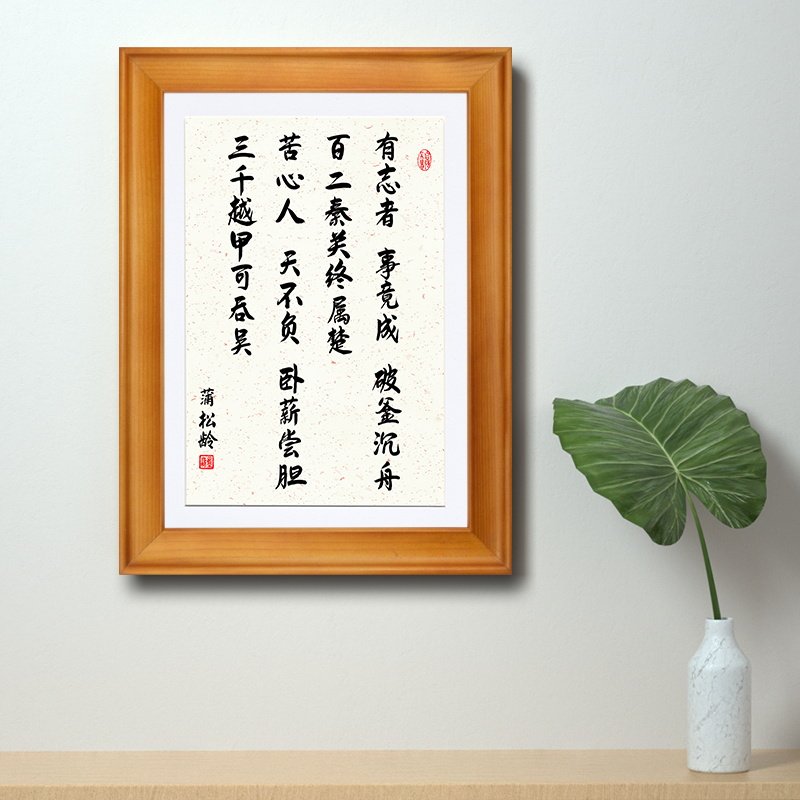 有志者 事竟成 破釜沉舟
百二秦关终属楚
苦心人 天不负 卧薪尝胆
三千越甲可吞吴
蒲松龄